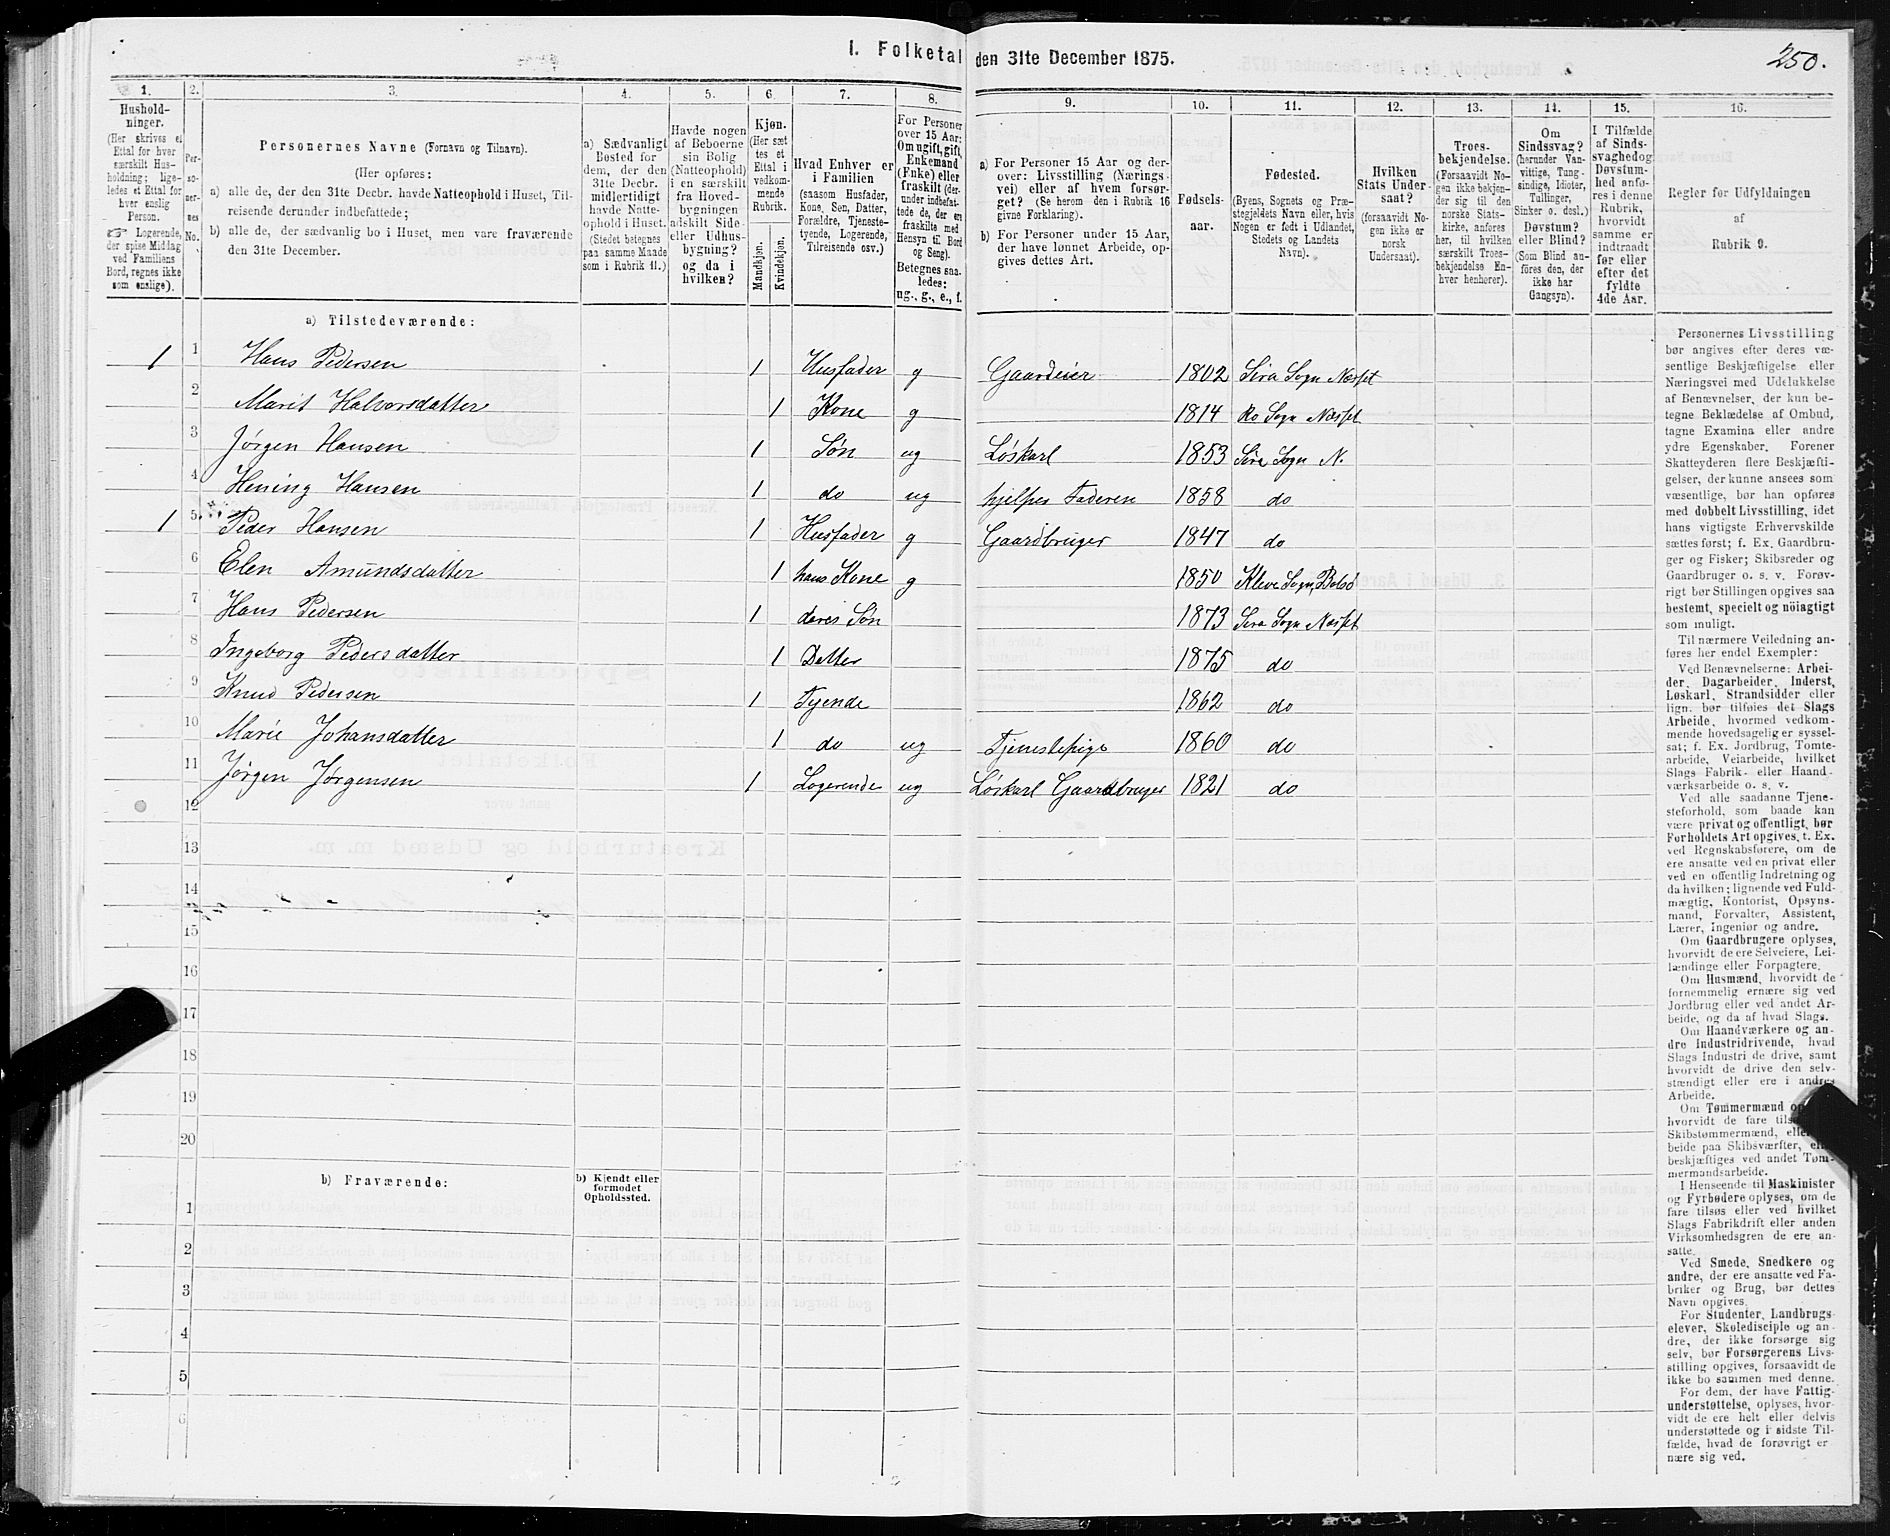 I. Folketal den 31te December 1875.
250.
1. 2. 3. 4. 5. 6. 7. 8. 9. 10. 11. 12. 13. 14. 15. 16.
Husholdninger. (Her skrives et Ettal for hver særskilt Husholdning; ligeledes et Ettal for hver enslig Person. Logerende, der spise Middag ved Familiens Bord, regnes ikke som enslige).
Personernes No.
Personernes Navne (Fornavn og Tilnavn).
(Her opføres:
a) alle de, der den 31te Decbr. havde Natteophold i Huset, Tilreisende derunder indbefattede;
b) alle de, der sædvanlig bo i Huset, men vare fraværende den 31te December.
a) Sædvanligt Bosted for dem, der den 31te Decbr. midlertidigt havde Natteophold i Huset. (Stedet betegnes paa samme Maade som i Rubrik 11.)
Havde nogen af Beboerne sin Bolig (Natteophold) i en særskilt fra Hovedbygningen adskilt Side- eller Udhusbygning? og da i hvilken?
Kjøn. (Her sættes et Ettal i vedkommende Rubrik. Mandkjøn. Kvindekjøn.
Hvad Enhver er i Familien (saasom Husfader, Kone, Søn, Datter, Forældre, Tjenestetyende, Logerende, Tilreisende osv.)
For Personer over 15 Aar: Om ugift, gift, Enkemand (Enke) eller fraskilt (derunder indbefattede de, der ere fraskilte med Hensyn til Bord og Seng). Betegnes saaledes: ug., g., e., f.
a) For Personer 15 Aar og derover: Livsstilling (Næringsvei) eller af hvem forsørget? (Se herom den i Rubrik 16 givne Forklaring).
b) For Personer under 15 Aar, der have lønnet Arbeide, opgives dettes Art.
Fødselsaar.
Fødested. (Byens, Sognets og Præstegjeldets Navn eller, hvis Nogen er født i Udlandet, Stedets og Landets Navn).
Hvilken Stats Undersaat? (forsaavidt Nogen ikke er norsk Undersaat).
Troesbekjendelse. (Forsaavidt Nogen ikke bekjender sig til den norske Statskirke, anføres her, til hvilken særskilt Troesbekjendelse Enhver henhører).
Om Sindssvag? (herunder Vanvittige, Tungsindige, Idioter, Tullinger, Sinker o. desl.) Døvstum? eller Blind? (Som Blind anføres den, der ikke har Gangsyn).
I Tilfælde af Sindssvaghed og Døvstumhed anføres i denne Rubrik, hvorvidt samme er indtraadt før eller efter det fyldte 4de Aar.
Regler for Udfyldningen af Rubrik 9.
a) Tilstedeværende:
1 1 Hans Pedersen 1 Husfader g Gaardeier 1802 Sira Sogn Næsset
2 Marit Halvorsdatter 1 Kone g 1814 Rø Sogn Næsset
3 Jørgen Hansen 1 Søn ug Løskarl 1853 Sira Sogn N.
4 Hening Hansen 1 do ug hjelper Faderen 1858 do
1 5 Peder Hansen 1 Husfader g Gaardbruger 1847 do
6 Elen Amundsdatter 1 hans Kone g 1850 Kleve Sogn, Bolsø
7 Hans Pedersen 1 deres Søn 1873 Sira Sogn Næsset
8 Ingeborg Pedersdatter 1 Datter 1875 do
9 Knud Pedersen 1 Tyende 1862 do
10 Marie Johansdatter 1 do ug Tjenestepige 1860 do
11 Jørgen Jørgensen 1 Logerende ug Løskarl Gaardbruger 1821 do
12
13
14
15
16
17
18
19
20
b) Fraværende:
b) Kjendt eller formodet Opholdssted.
1
2
3
4
5
6
Personernes Livsstilling
bør angives efter deres væsentlige
Beskjæftigelse eller
Næringsvei med Udelukkelse
af Benævnelser, der kun betegne
Beklædelse af Ombud,
tagne Examina eller andre
ydre Egenskaber. Forener
Skatteyderen flere Beskjæftigelser,
der kunne ansees som
væsentlige, bør han opføres
med dobbelt Livsstilling, idet
hans vigtigste Erhvervskilde
sættes først; f. Ex. Gaardbruger
og Fisker; Skibsreder og
Gaardbruger o. s. v. Forøvrigt
bør Stillingen opgives saa
bestemt, specielt og nöiagtigt
som muligt.
Til nærmere Veiledning anføres
her endel Exempler:
Ved Benævnelserne: Arbeider,
Dagarbeider, Inderst,
Løskarl, Strandsidder eller
lign. bør tilføies det Slags
Arbeide, hvormed vedkommende
hovedsagelig er sysselsat;
f. Ex. Jordbrug, Tomtearbeide,
Veiarbeide, hvilket
Slags Fabrik- eller Haandværksarbeide
o. s. v.
Ved alle saadanne Tjenesteforhold,
som baade kan
være privat og offentligt, bør
Forholdets Art opgives, t. Ex.
ved Regnskabsførere, om de
ere ansatte ved en privat eller
ved en offentlig Indretning og
da hvilken; lignende ved Fuldmægtig,
Kontorist, Opsynsmand,
Forvalter, Assistent,
Lærer, Ingeniør og andre.
Om Gaardbrugere oplyses,
hvorvidt de ere Selveiere, Leilændinge
eller Forpagtere.
Om Husmænd, hvorvidt de
fornemmelig ernære sig ved
Jordbrug eller ved andet Arbeide,
og da af hvad Slags.
Om Haandværkere og andre
Industridrivende, hvad
Slags Industri de drive, samt
hvorvidt de drive den selvstændigt
eller ere i andres
Arbeide.
Om Tømmermænd
hvorvidt de fare
Skibstømmermænd,
beide paa Skibsværfter,
beskjæftiges ved andet Tømmermandsarbeide.
I Henseende til Maskinister
og Fyrbødere oplyses, om de
fare tilsøs eller ved hvilket
Slags Fabrikdrift eller anden
Virksomhedsgren de ere ansatte.
Ved Smede, Snedkere og
andre, der ere ansatte ved Fabriker
og Brug, bør dettes
Navn opgives.
For Studenter, Landbrugselever,
Skoledisciple og andre,
der ikke forsørge sig
selv, bør Forsørgerens Livsstilling
opgives, forsaavidt de
ikke bo sammen med denne.
For dem, der have Fattigunderstøttelse,
oplyses, hvorvidt
de ere helt eller delvis
understøttede og i sidste Tilfælde,
hvad de forøvrigt er
nære sig ved.